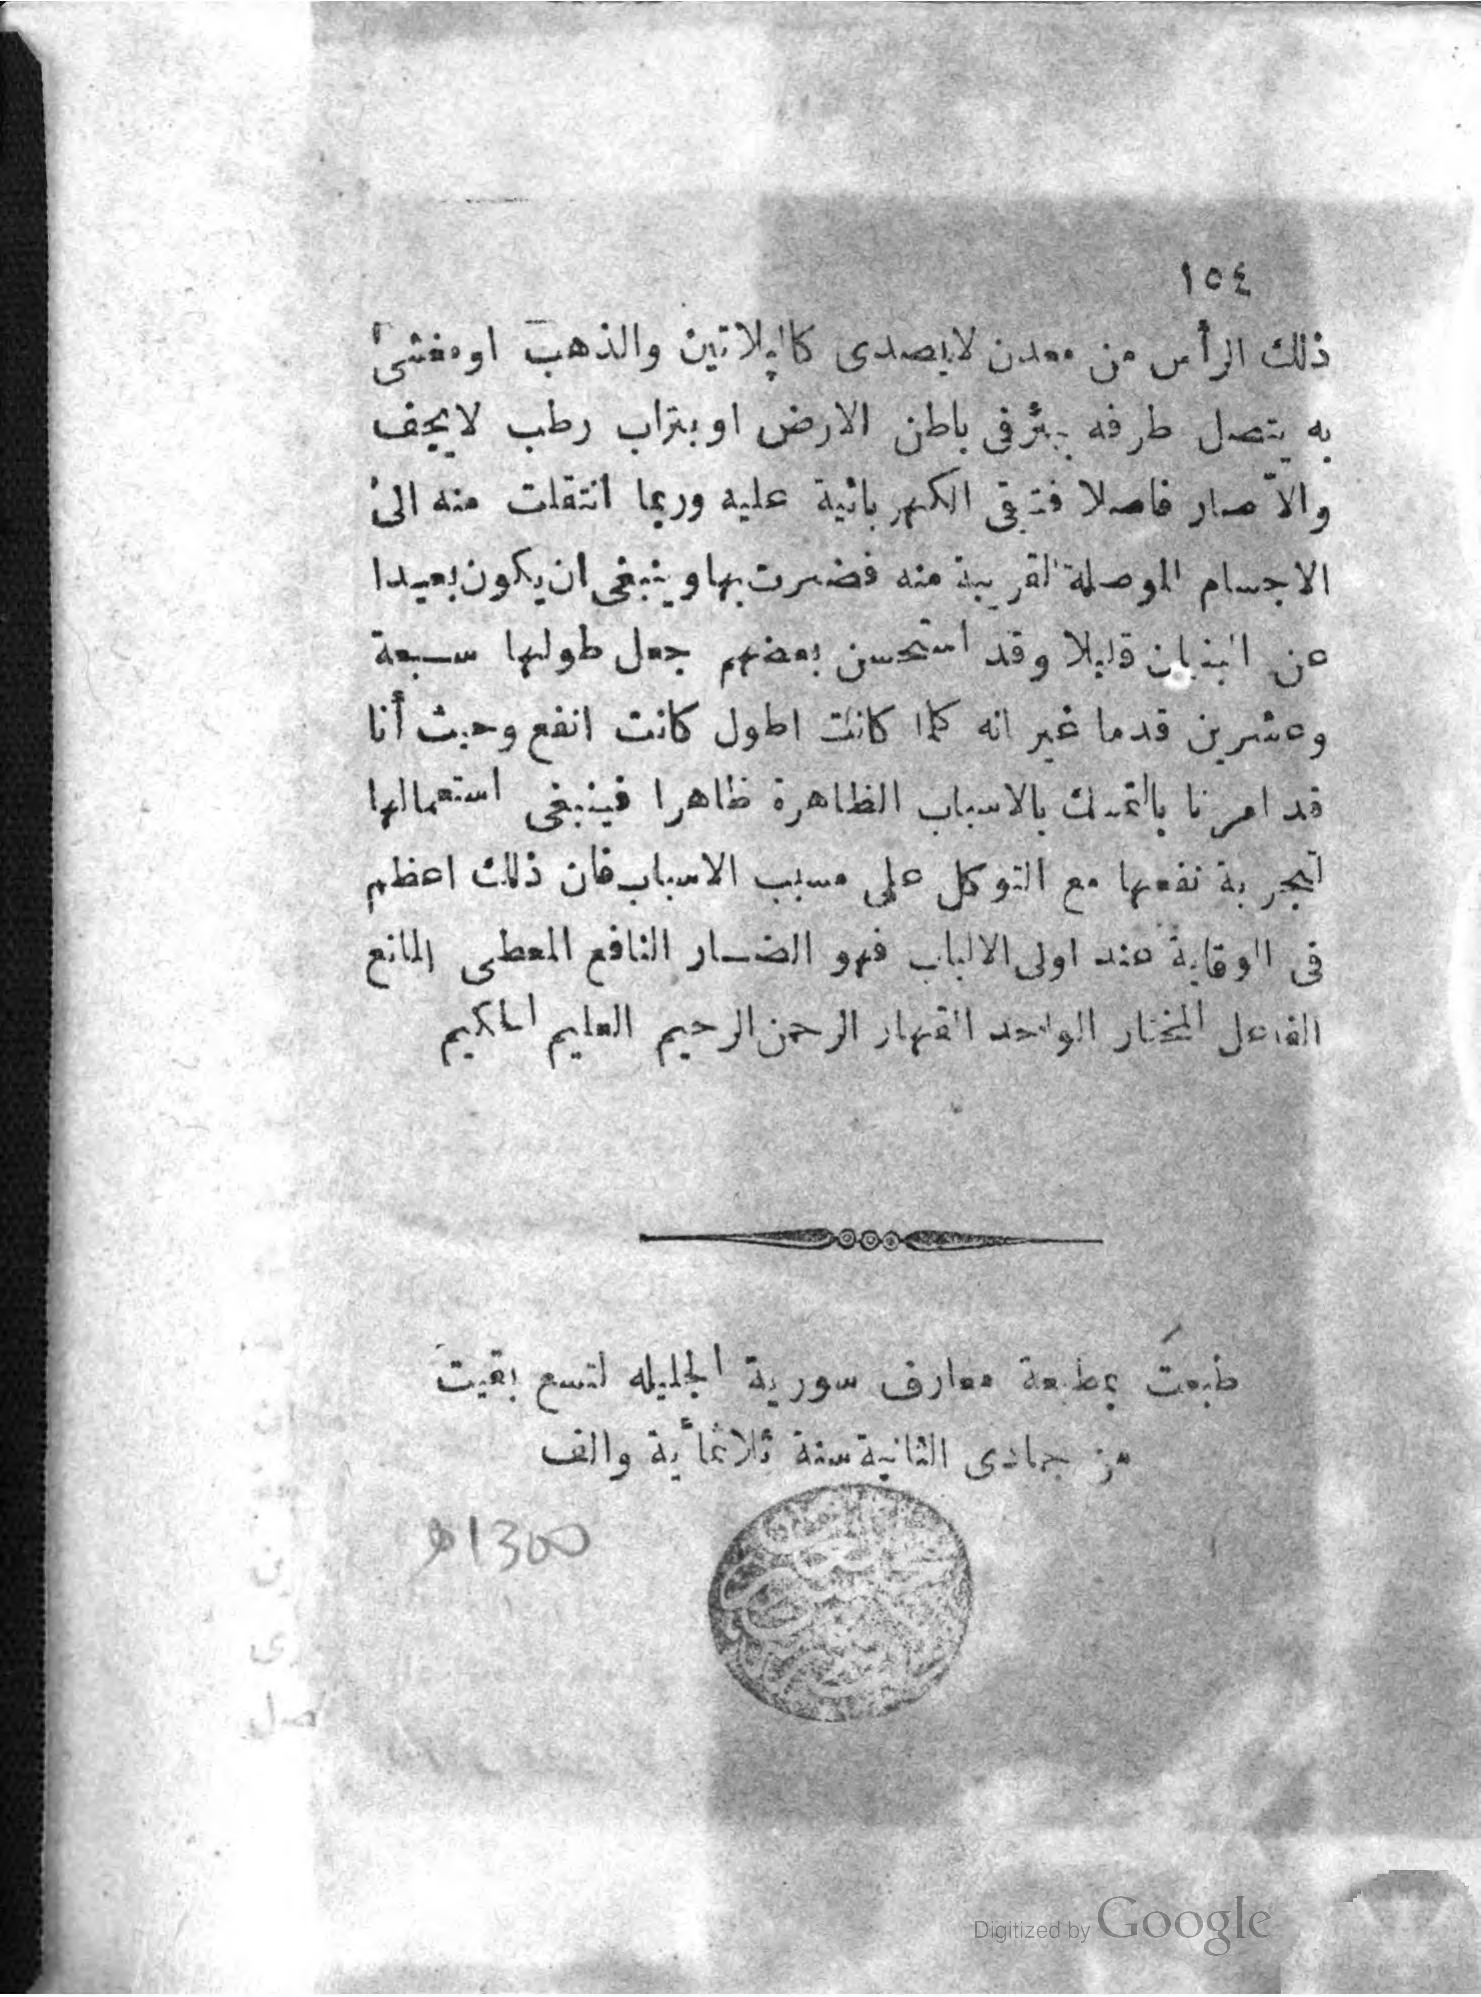 ١٥٤
ذلك الرأس من معدن لايصدى كالپلاتين والذهب اومغشىً
به يتصل طرفه ببئرفى باطن الارض اوبتراب رطب لايجف
والاّ صار فاصلا فتبقى الكهربائية عليه وربما انتقلت منه الى
الاجسام الموصلة القريبة منه فضرت بها وينبغى ان يكون بعيدا
عن البنيان قليلا وقد استحسن بعضهم جعل طولها سبعة
وعشرين قدما غير انه كلما كانت اطول كانت انفع وحيث أنا
قد امرنا بالتمسك بالاسباب الظاهرة ظاهرا فينبغى استعمالها
لتجربة نفعها مع التوكل على مسبب الاسباب فان ذلك اعظم
فى الوقاية عند اولى الالباب فهو الضار النافع المعطى المانع
الفاعل المختار الواحد القهار الرحمن الرحيم العليم الحكيم
طبعت بمطبعة معارف سورية الجليله لتسع بقيت
من جمادى الثانية سنة ثلاثمأية والف
1300
Digitized by Google